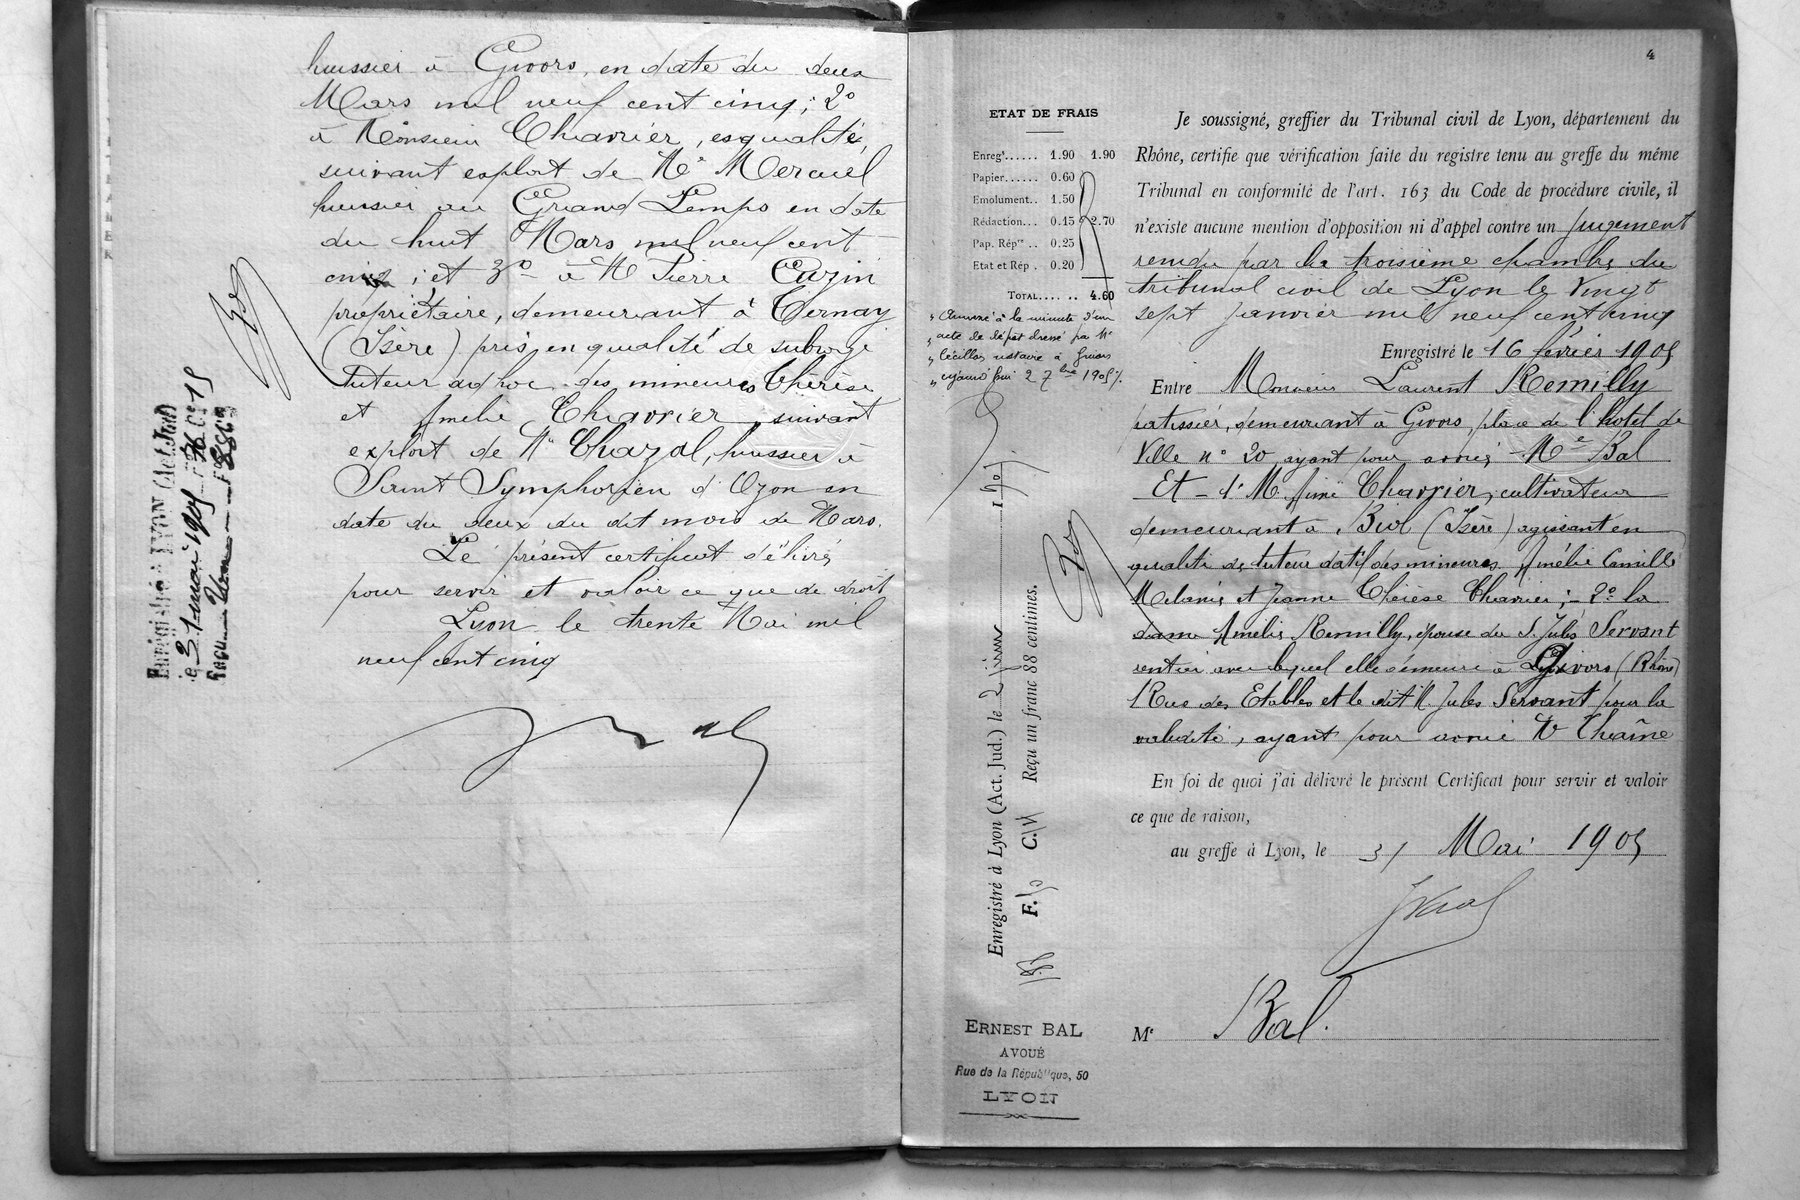 huissier à Givors, en date du deux
Mars mil neuf cent cinq; 2º
à Monsieur Chavrier, esqualité,
suivant exploit de Me
huissier au Grand Lemps en date
du huit Mars mil neuf cent
cinq ; et 3º à M Pierre Cazin
propriétaire, demeurant à Ternay
(Isère) pris en qualité de subrogé
tuteur ad hoc des mineures Thérèse
et Amélie Chavrier, suivant
exploit de Me Chazal, huissier à
Saint Symphorien d'Ozon en
date du deux du dit mois de Mars.
Le présent certificat délivré
pour servir et valoir ce que de droit
Lyon le trente Mai mil
neuf cent cinq
Enregistré à LYON (Act. Jud)
le 31 mai 1905
Reçu
4
ETAT DE FRAIS
Enregt...... 1.90 1.90
Papier...... 0.60
Emolument.. 1.50
Rédaction... 0.15 2.70
Pap. Répre .. 0.25
Etat et Rép . 0.20
TOTAL.... .. 4.60
" Annexé à la minute d'un
" acte de dépôt dressé par Me
" Cécillon notaire à Givors
" aujourd'hui 27 1905
Enregistré à Lyon (Act. Jud.) le 2 juin 1905
F. C. Reçu un franc 88 centimes.
ERNEST BAL
AVOUÉ
Rue de la République, 50
LYON
Je soussigné, greffier du Tribunal civil de Lyon, département du
Rhône, certifie que vérification faite du registre tenu au greffe du même
Tribunal en conformité de l'art. 163 du Code de procédure civile, il
n'existe aucune mention d'opposition ni d'appel contre un jugement
rendu par la troisième chambre du
tribunal civil de Lyon le vingt
sept Janvier mil neuf cent cinq
Enregistré le 16 février 1905
Entre Monsieur Laurent Remilly
patissier, demeurant à Givors, place de l'hotel de
Ville nº 20 ayant pour avoué Me Bal
Et - 1º M Aimé Chavrier, cultivateur
demeurant à Biol (Isère) agissant en
qualité de tuteur datif des mineures Amélie Camille
Mélanie et Jeanne Thérèse Chavrier ; - 2º la
dame Amélie Remilly, épouse du S. Jules Servant
rentier avec lequel elle demeure à Givors (Rhône)
Rue des Etables et le dit M Jules Servant pour la
validité, ayant pour avoué Me Chaîne
En foi de quoi j'ai délivré le présent Certificat pour servir et valoir
ce que de raison,
au greffe à Lyon, le 31 Mai 1905
Me Bal.